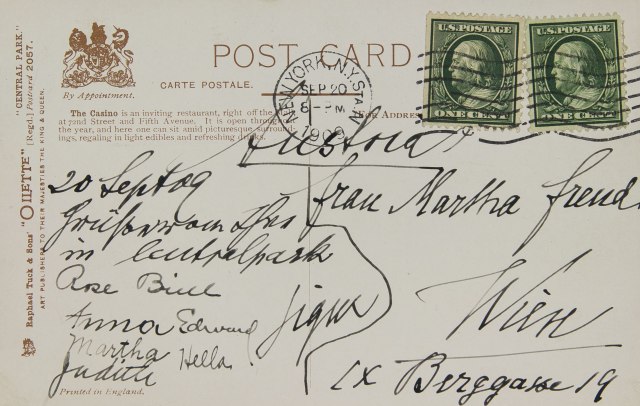 "CENTRAL PARK."
[Regd.] Postcard 2057.
"OILETTE"
Raphael Tuck & Sons'
ART PUBLISHERS TO THEIR MAJESTIES THE KING & QUEEN.
By Appointment.
POST CARD
CARTE POSTALE.
FOR ADDRESS
The Casino is an inviting restaurant, right off the
at 72nd Street and Fifth Avenue. It is open through
the year, and here one can sit amid picturesque surround-
ings, regaling in light edibles and refreshing drinks.
NEW YORK, N.Y. STA.
SEP 20
8- PM
1909
U.S. POSTAGE
ONE CENT
U.S. POSTAGE
ONE CENT
20 Sept 09
in Centralpark
Rose
Anna Edward
Martha Hella
Judith
Sigm
Frau Martha Freud
Wien
IX Berggasse 19
Printed in England.